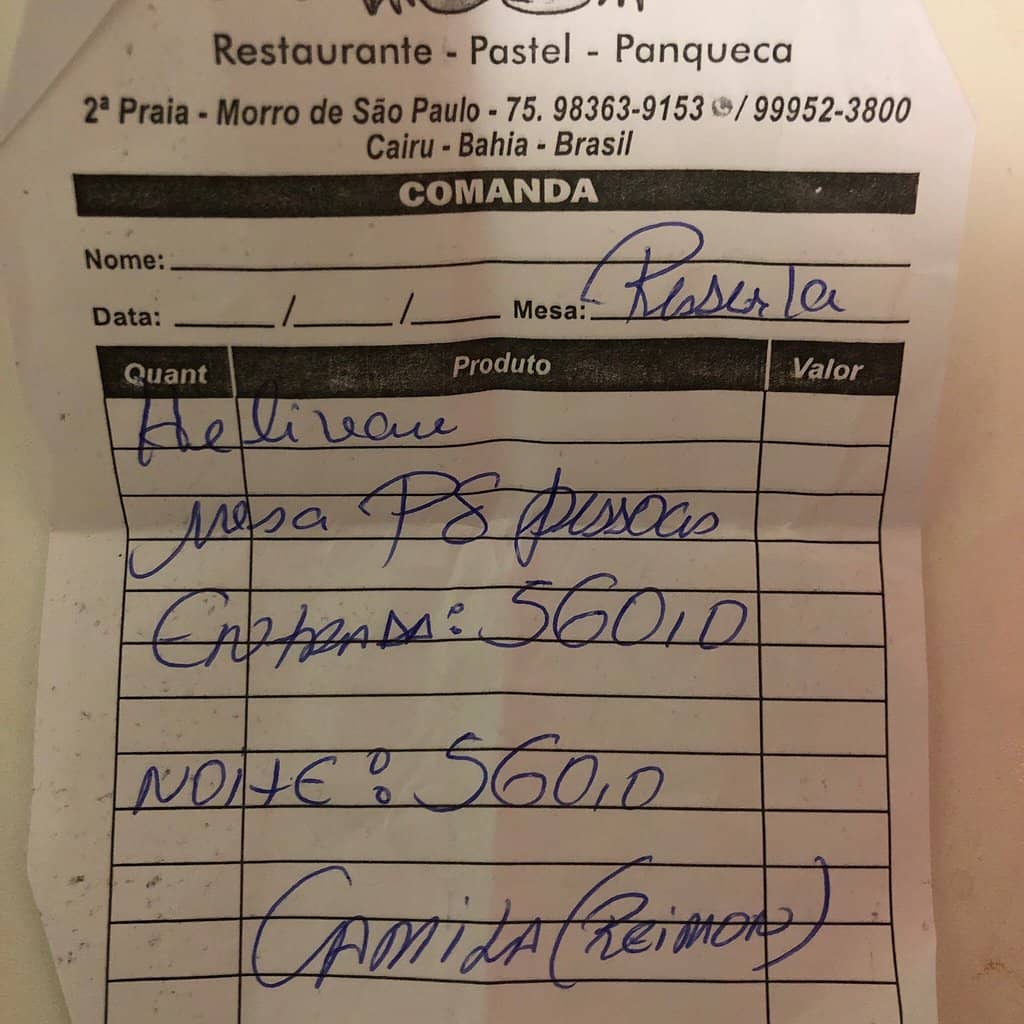 Restaurante - Pastel - Panqueca
2ª Praia - Morro de São Paulo - 75. 98363-9153 / 99952-3800
Cairu - Bahia - Brasil
COMANDA
Nome:
Data: / / Mesa: Resserla
Quant Produto Valor
mesa P8 pessoas
ENTRADA: 560,0
NOITE: 560,0
CAMILA (REIMON)